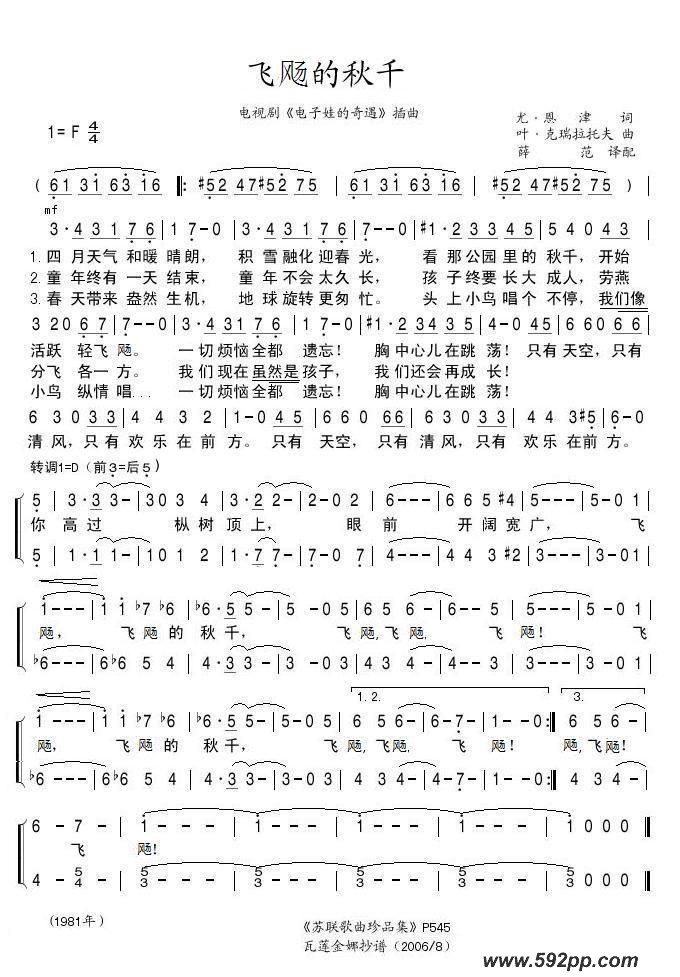 飞飏的秋千
电视剧《电子娃的奇遇》插曲
尤·恩津 词
1=F 4/4
叶·克瑞拉托夫 曲
薛范 译配
( 61 31 63 16 ‖: #52 47#52 75 | 61 31 63 16 | #52 47#52 75 )
mf
3·4 3 1 7 6 | 1 7-0 | 3·4 3 1 7 6 | 7--0 | #1·2 3 3 4 5 | 4 3·0 3 4
1.四 月天气 和暖 晴朗， 积 雪融化迎春 光， 看 那公园里的秋千，开始
2.童 年终有 一天 结束， 童 年不会太久 长， 孩 子终要长大成人，劳燕
3.春 天带来 盎然 生机， 地 球旋转更匆 忙。 头 上小鸟唱个 不停，我们像
3 20 6 7 | 7--0 | 3·4 31 7 6 | 1 7-0 | #1·2 3 3 4 5 | 4 3·0 6 6
活跃 轻飞 飏。 一切烦恼全都 遗忘！ 胸中心儿在跳 荡！只有天空，只有
分飞 各一方。 我们现在虽然是孩子， 我们还会再成 长！
小鸟 纵情 唱... 一切烦恼全都 遗忘！ 胸中心儿在跳 荡！
6 3 0 3 3 | 4 4 3 2 | 1-0 4 5 | 6 6 0 6 6 | 6 3 0 3 3 | 4 4 3 #5 | 6--0
清风，只有 欢乐在前 方。只有 天空，只有 清风，只有 欢乐在前方。
转调1=D（前3=后5）
5 | 3·3 3- | 3 0 3 4 | 3·2 2- | 2-0 2 | 6--- | 6 6 5 #4 | 5--- | 5-0 5
你 高过 枞树顶上， 眼 前 开阔宽广， 飞
5 | 1·1 1- | 1 0 1 2 | 1·7 7- | 7-0 5 | 4--- | 4 4 3 #2 | 3--- | 3-0 1
1--- | 1 1 b7 b6 | b6·5 5- | 5 -0 5 | 6 5 6- | 6-- 5 | 5--- | 5-0 5
飏， 飞飏的 秋千， 飞飏，飞飏， 飞 飏！ 飞
b6--- | b6 b6 5 4 | 4·3 3- | 3-0 3 | 4 3 4- | 4-- 3 | 3--- | 3-0 1
1. 2.
3.
1--- | 1 1 b7 b6 | b6·5 5- | 5-0 5 | 6 5 6- | 6-7- | 1--0 :‖ 6 5 6-
飏， 飞飏的 秋千， 飞 飏，飞飏， 飞 飏！ 飞 飏，飞飏！
b6--- | b6 b6 5 4 | 4·3 3- | 3-0 3 | 4 3 4- | 4-7- | 1--0 :‖ 4 3 4-
6 - 7 - | 1--- | 1--- | 1--- | 1--- | 1 0 0 0 ‖
飞 飏！
4 - 5/4 - | 5/3--- | 5/3--- | 5/3--- | 5/3--- | 5/3 0 0 0 ‖
(1981年)
《苏联歌曲珍品集》P545
瓦莲金娜抄谱（2006/8）
www.592pp.com